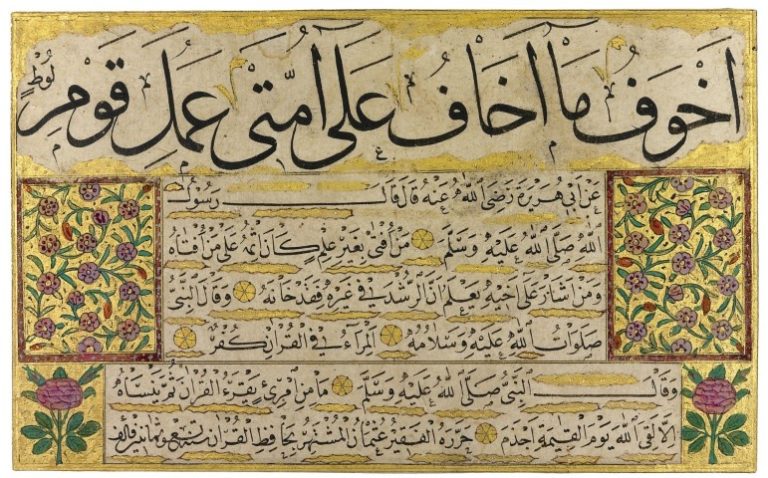 اخوف ما اخاف على امتى عمل قوم لوط
عن ابى هريرة رضى الله عنه قال قال رسول
الله صلى الله عليه وسلم من افتى بغير علم كان اثمه على من افتاه
ومن اشار على اخيه بامر يعلم ان الرشد فى غيره فقد خانه وقال النبى
صلوات الله عليه وسلامه المراء فى القران كفر
وقال النبى صلى الله عليه وسلم ما من امرئ يقرء القران ثم ينساه
الا لقى الله يوم القيمة اجذم حرره الفقير عثمان المشتهر بحافظ القران